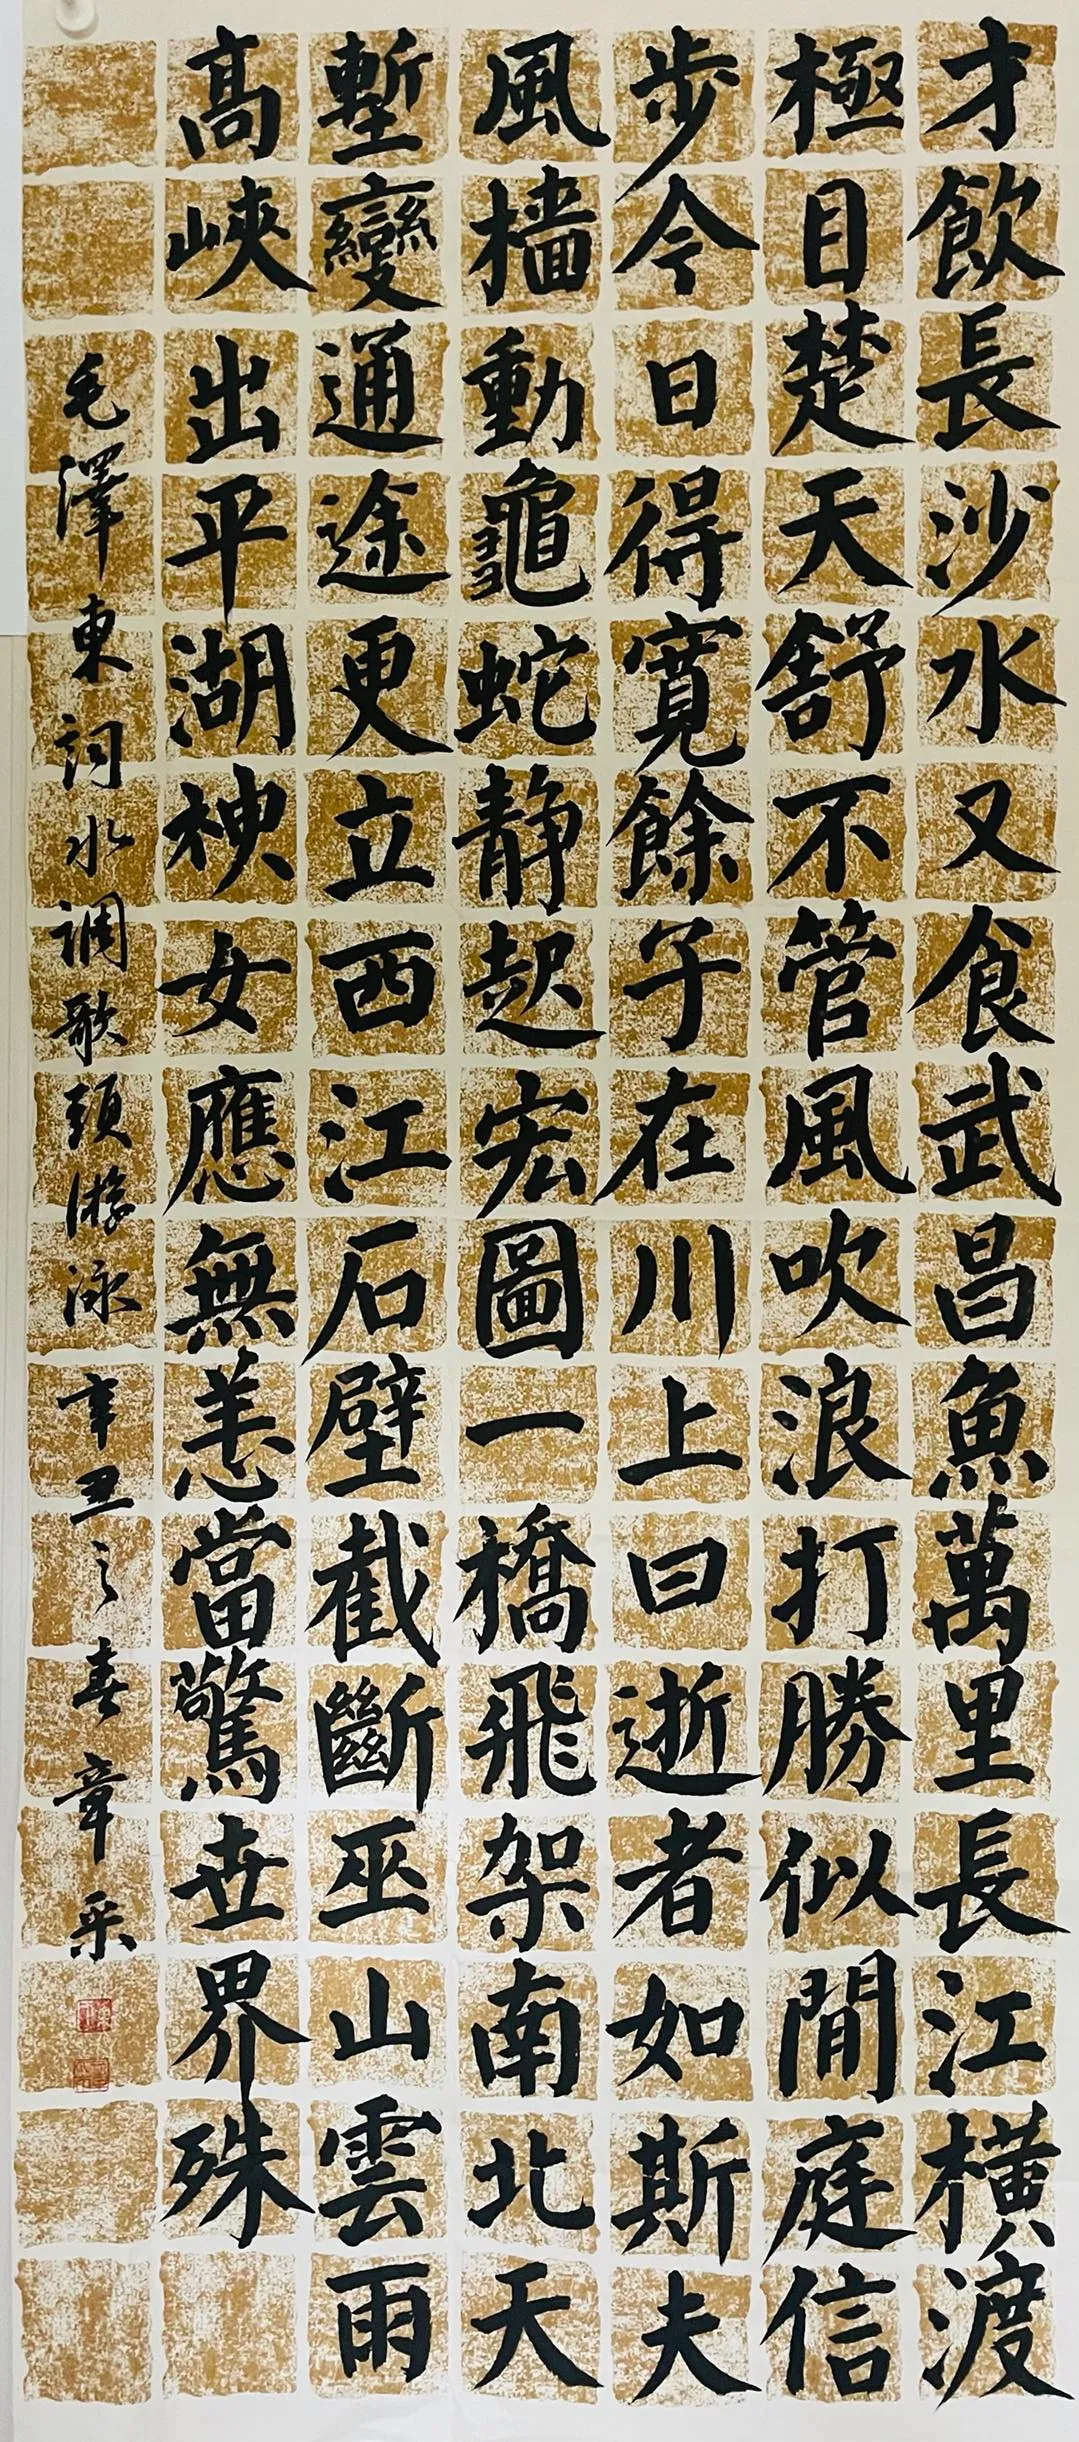 才飲長沙水又食武昌魚萬里長江橫渡
極目楚天舒不管風吹浪打勝似閒庭信
步今日得寬餘子在川上曰逝者如斯夫
風檣動龜蛇靜起宏圖一橋飛架南北天
塹變通途更立西江石壁截斷巫山雲雨
高峽出平湖神女應無恙當驚世界殊
毛澤東詞水調歌頭游泳辛丑之春章采